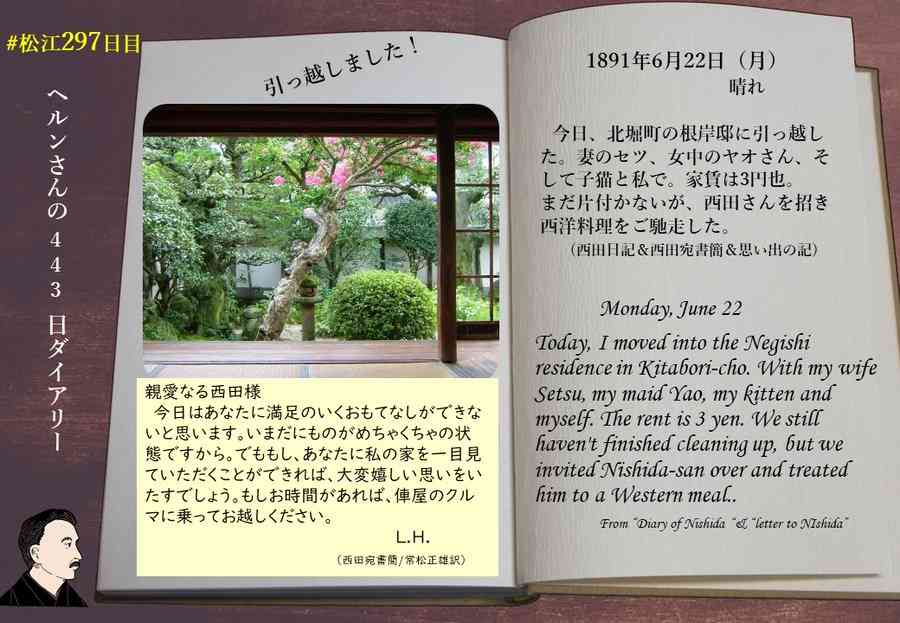 #松江297日目
ヘルンさんの443日ダイアリー
引っ越しました！
親愛なる西田様
今日はあなたに満足のいくおもてなしができな
いと思います。いまだにものがめちゃくちゃの状
態ですから。でももし、あなたに私の家を一目見
ていただくことができれば、大変嬉しい思いをい
たすでしょう。もしお時間があれば、俥屋のクル
マに乗ってお越しください。
L.H.
（西田宛書簡/常松正雄訳）
1891年6月22日（月）
晴れ
今日、北堀町の根岸邸に引っ越し
た。妻のセツ、女中のヤオさん、そ
して子猫と私で。家賃は3円也。
まだ片付かないが、西田さんを招き
西洋料理をご馳走した。
（西田日記＆西田宛書簡＆思い出の記）
Monday, June 22
Today, I moved into the Negishi
residence in Kitabori-cho. With my wife
Setsu, my maid Yao, my kitten and
myself. The rent is 3 yen. We still
haven't finished cleaning up, but we
invited Nishida-san over and treated
him to a Western meal..
From “Diary of Nishida “& “letter to NIshida”